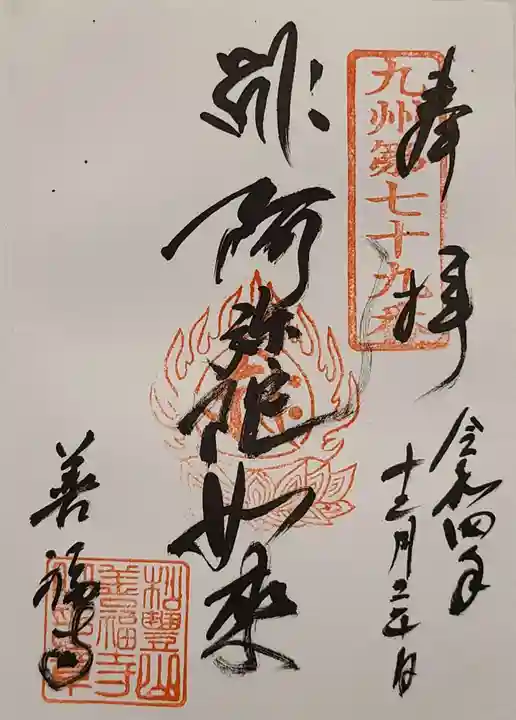 奉拝
九州第七十九番
令和四年
十二月二十日
阿弥陀如来
善福寺
松豊山
善福寺